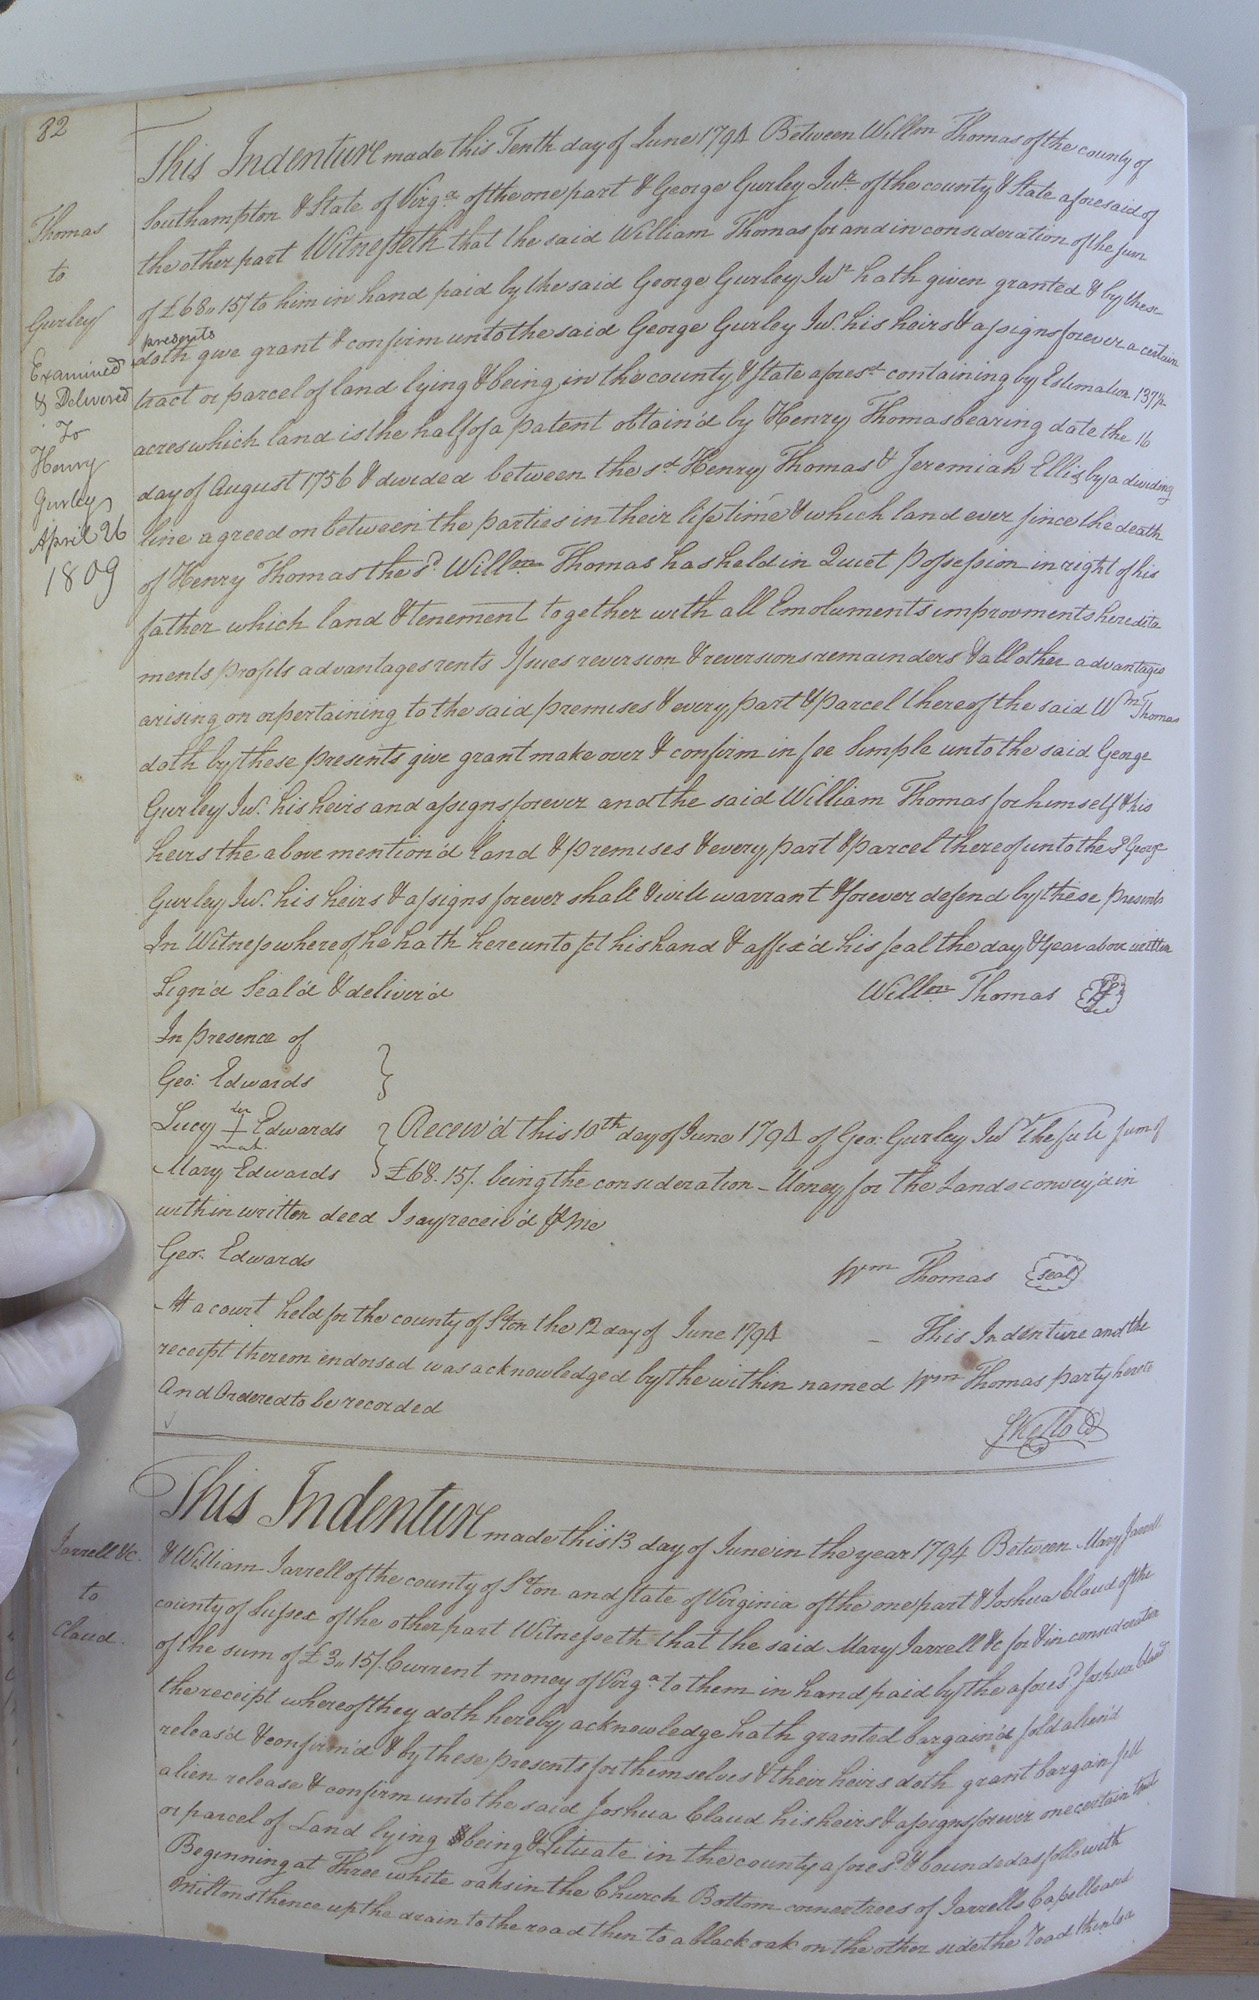 82
Thomas
to
Gurley
Examined
& Delivered
To
Henry
Gurley
April 26
1809
This Indenture made this Tenth day of June 1794 Between Willm Thomas of the county of
Southampton & State of Virga. of the one part & George Gurley Junr. of the county & State aforesaid of
the other part Witnesseth that the said William Thomas for and in consideration of the sum
of £68,,15/ to him in hand paid by the said George Gurley Junr hath given granted & by these
presents
doth give grant & confirm unto the said George Gurley Jur. his heirs & assigns forever a certain
tract or parcel of land lying & being in the county & State aforesd. containing by Estimation 137½
acres which land is the half of a patent obtain'd by Henry Thomas bearing date the 16
day of August 1756 & divided between the sd. Henry Thomas & Jeremiah Ellis by a dividing
line agreed on between the parties in their life time & which land ever since the death
of Henry Thomas the sd. Willm Thomas has held in Quiet Possession in right of his
father which land & tenement together with all Emoluments improvments heredita
ments profits advantages rents Issues reversion & reversions remainders & all other advantages
arising on or pertaining to the said premises & every part & parcel thereof the said Wm Thomas
doth by these presents give grant make over & confirm in fee Simple unto the said George
Gurley Jur. his heirs and assigns forever and the said William Thomas for himself & his
heirs the above mention'd land & premises & every part & parcel thereof unto the sd George
Gurley Jur. his heirs & assigns forever shall & will warrant & forever defend by these presents
In Witness whereof he hath hereunto set his hand & affix'd his seal the day & year above written
Sign'd Seal'd & deliver'd Willm Thomas
In presence of
Geo: Edwards
her
Lucy + Edwards Receiv'd this 10th day of June 1794 of Geo: Gurley Junr the full sum of
mark
Mary Edwards £68.15/. being the consideration Money for the Land convey'd in
within written deed I say receiv'd by me
Geo: Edwards
Wm Thomas seal
At a court held for the county of Ston the 12 day of June 1794 This Indenture and the
receipt thereon endorsed was acknowledged by the within named Wm Thomas party hereto
And Ordered to be recorded
Jarrell &c.
to
Claud.
This Indenture made this 13 day of June in the year 1794 Between Mary Jarrell
& William Jarrell of the county of Ston and State of Virginia of the one part & Joshua Claud of the
county of Sussex of the other part Witnesseth that the said Mary Jarrell &c for & in consideration
of the sum of £3,,15/. Current money of Virga. to them in hand paid by the aforesd Joshua Claud
the receipt whereof they doth hereby acknowledge hath granted bargain'd sold alien'd
releas'd & confirm'd & by these presents for themselves & their heirs doth grant bargain sell
alien release & confirm unto the said Joshua Claud his heirs & assigns forever one certain tract
or parcel of Land lying being & Situate in the county aforesd & bounded as follo with
Beginning at Three white oaks in the Church Bottom corner trees of Jarrells Capell and
Millions thence up the drain to the road then to a black oak on the other side the road